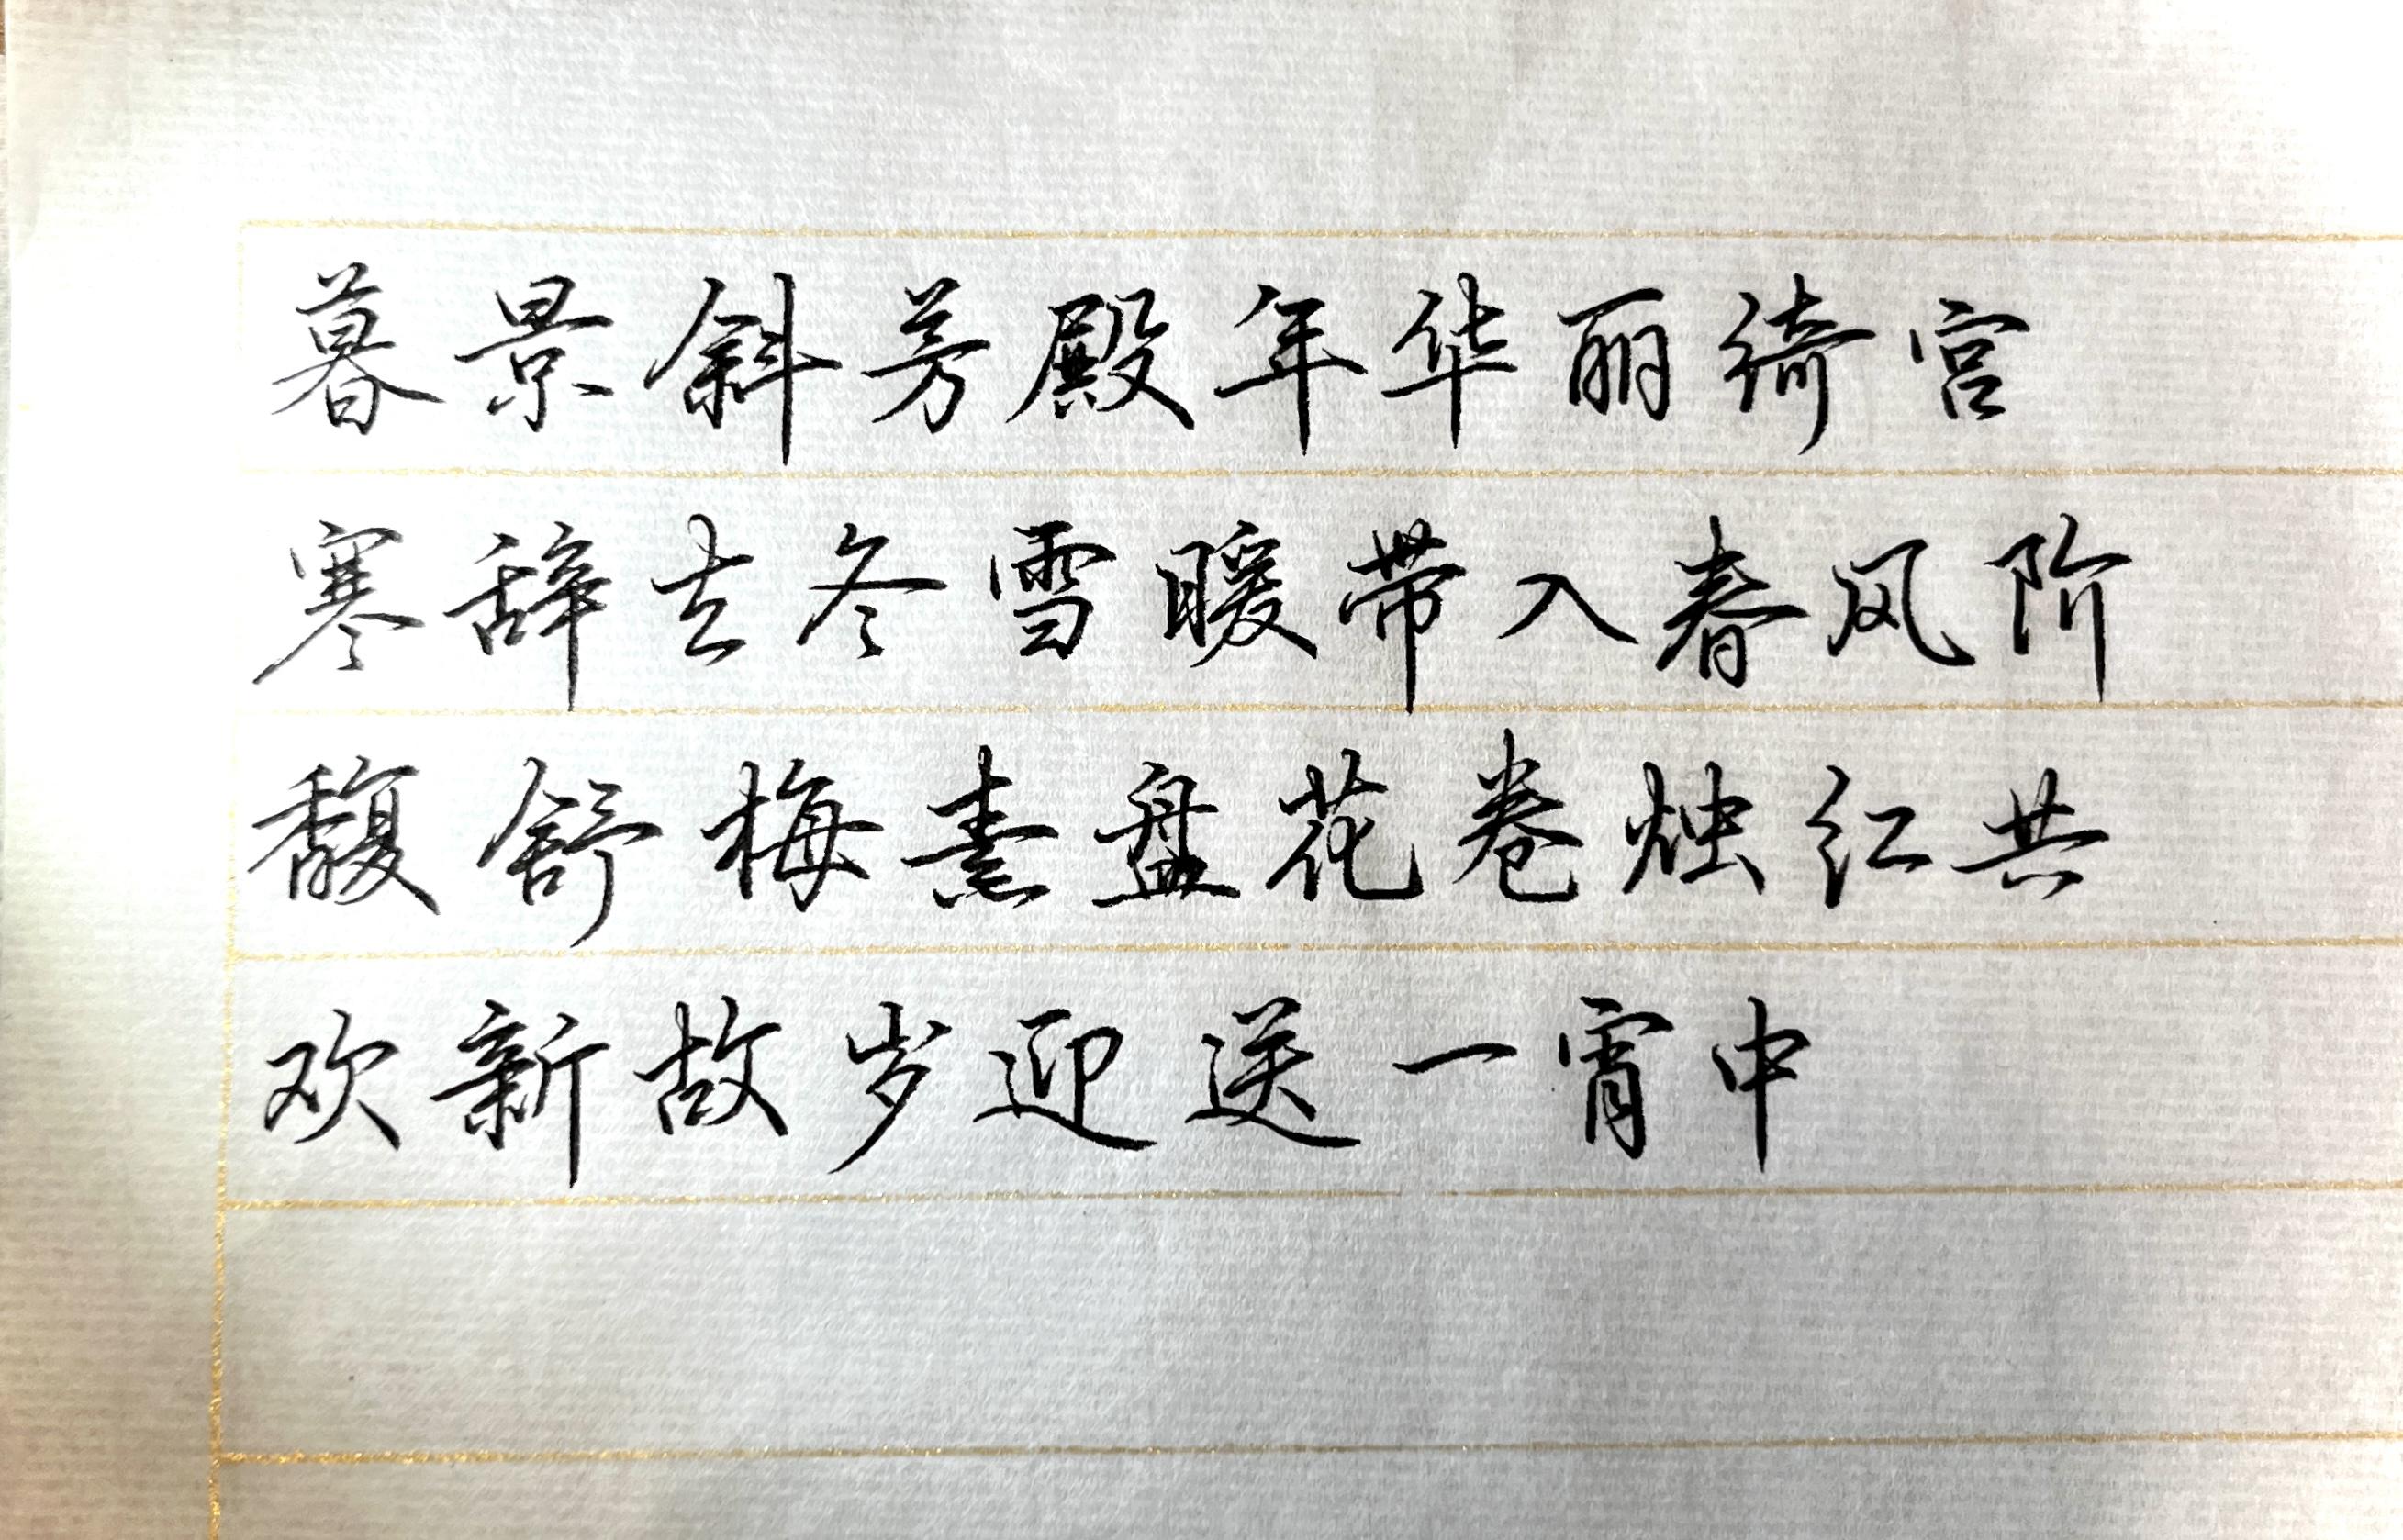 暮景斜芳殿年华丽绮宫
寒辞去冬雪暖带入春风阶
馥舒梅素盘花卷烛红共
欢新故岁迎送一宵中